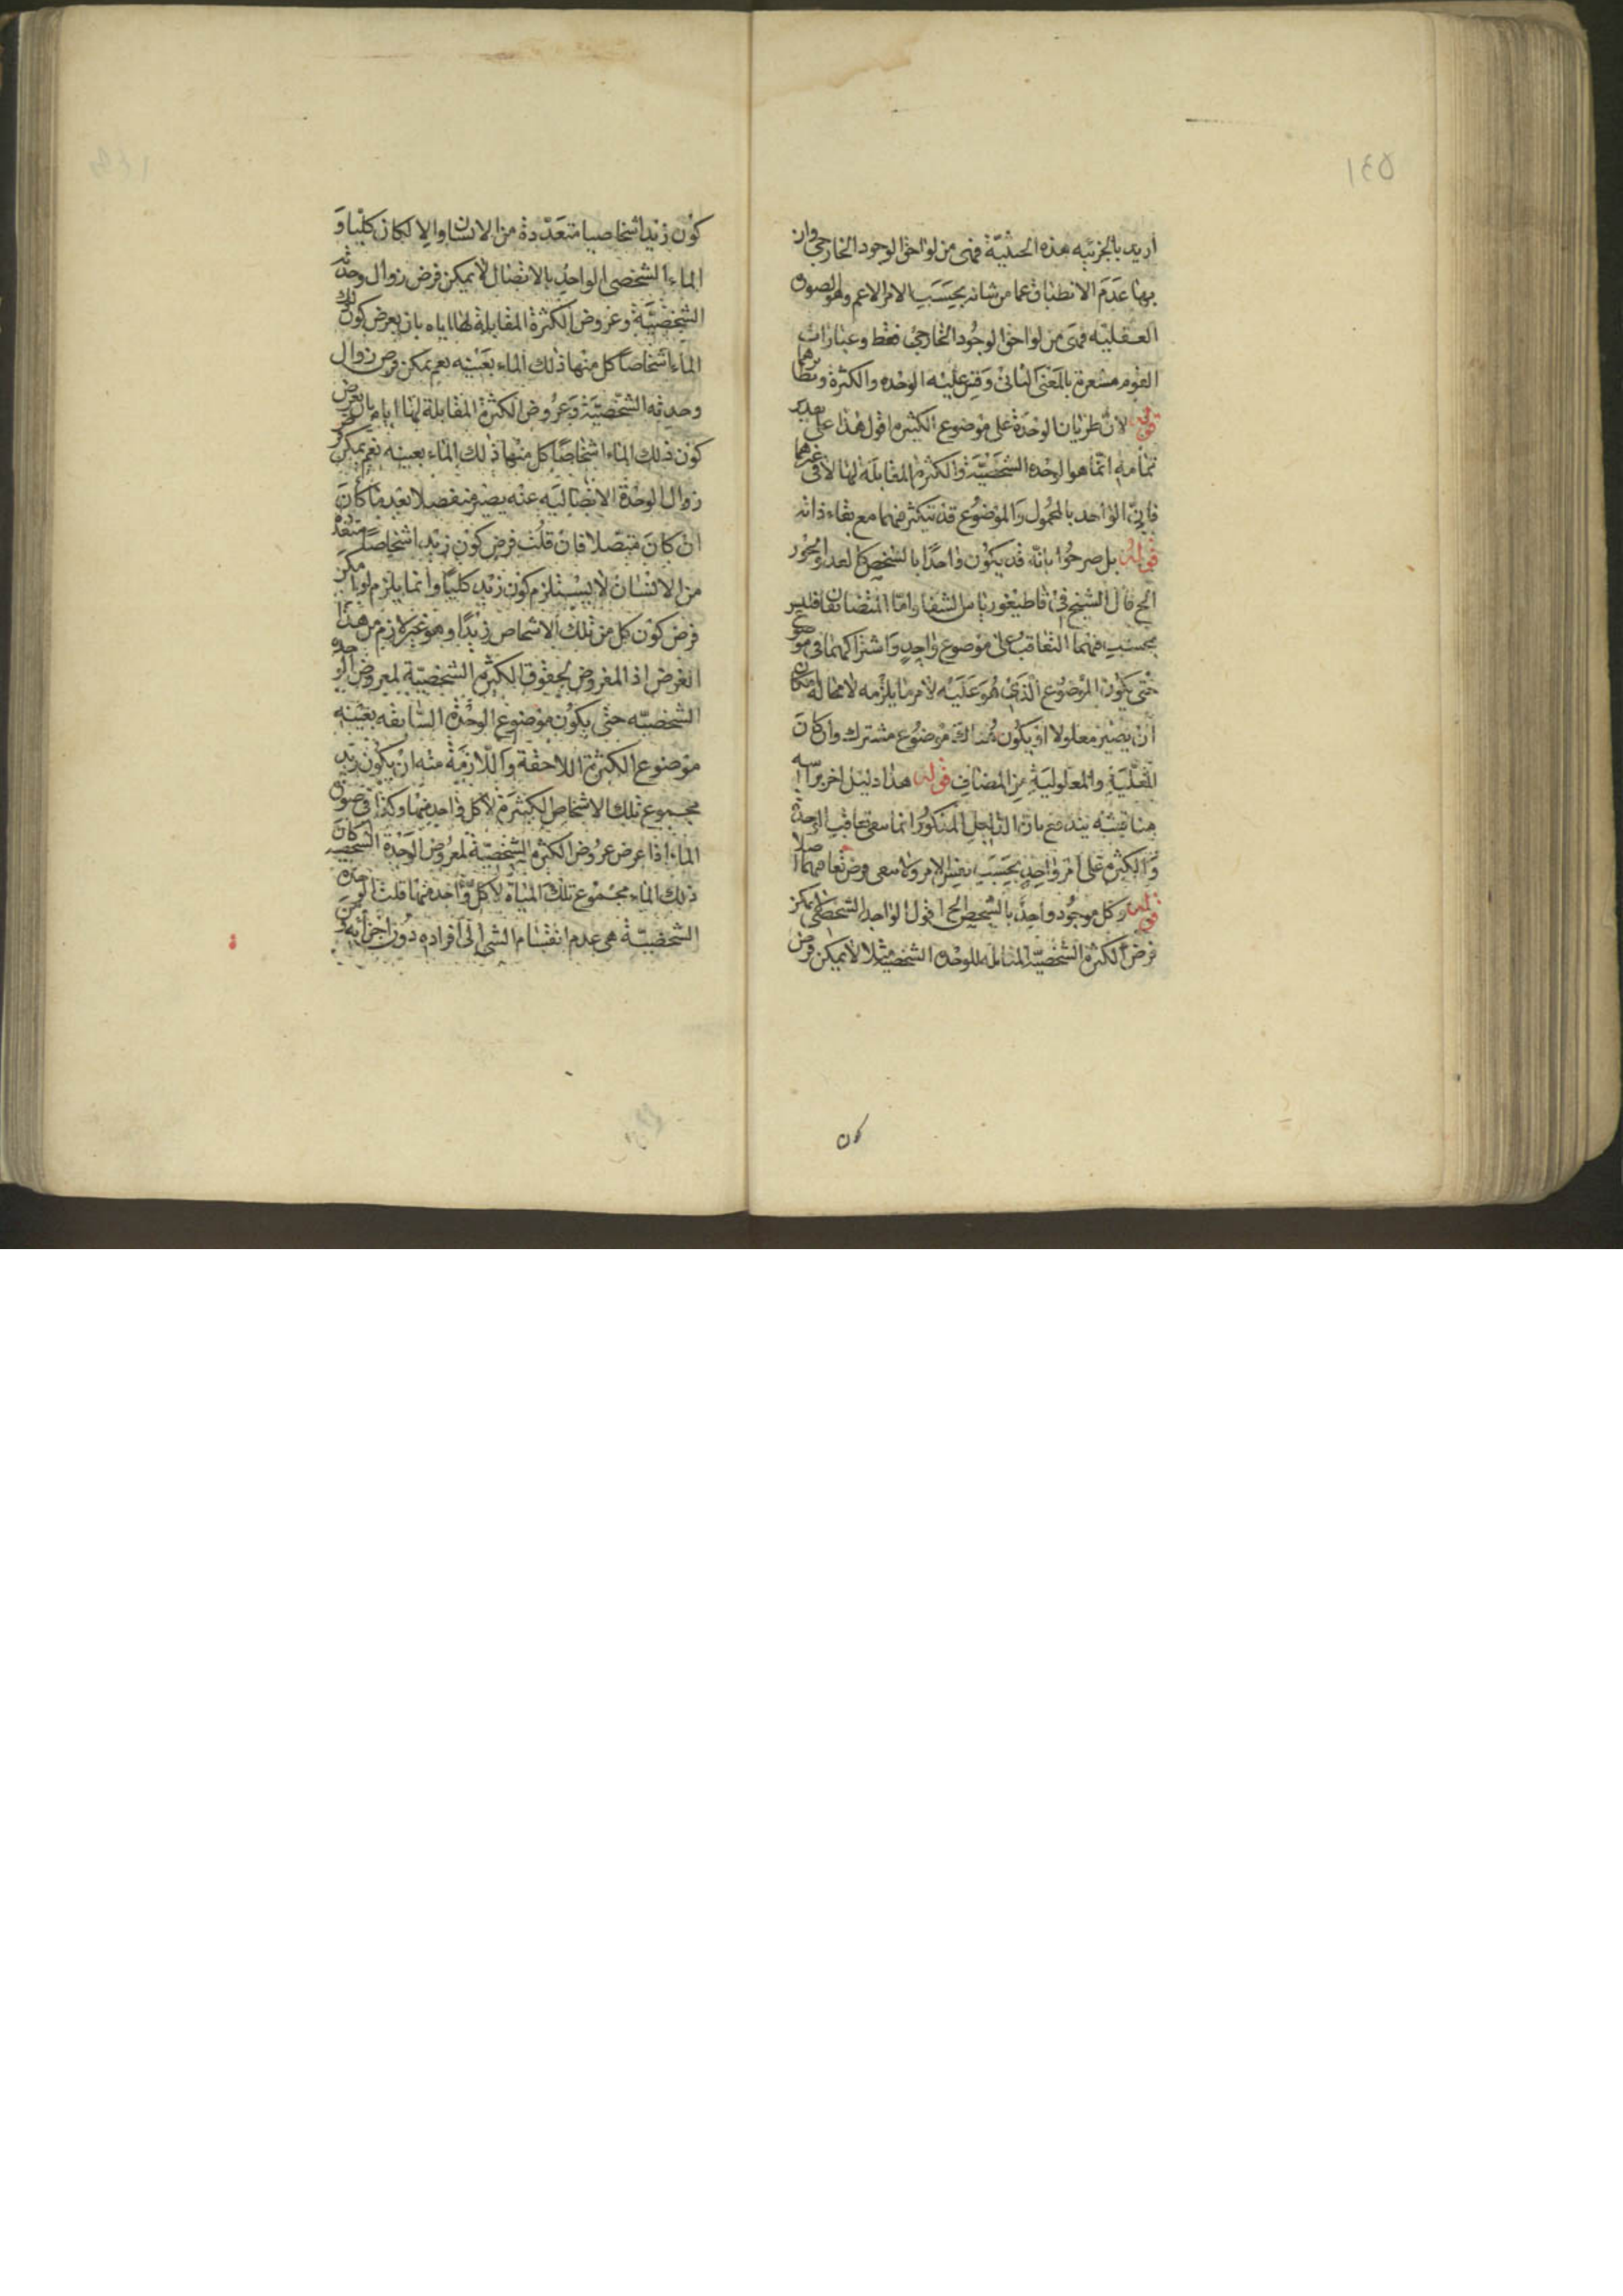 ١٤٥
اريد بالجزئيه هذه الحيثيّة فهى من لواحق الوجود الخارجى وان
بها عَدَمَ الانطباق عما من شانه بحسَبَ الامر الاعم وهو الصور
العقليّه فهى من لواحق الوجُود الخارجى فقط وعبارات
القوم مشعرة بالمعنى الثانى وَقِس عليْه الوحده والكثرة ونظائرهما
قوله لان طريان الوحدَة على موْضوع الكثيرة اقول هذا على تقدير
تمامه انما هو الوحده الشخصيّة والكثرة المقابلَة لها لا فى غيرهما
فانّ الواحد بالمحمُول والموْضوُع قد يتكثر فيهما مع بقاء ذاته
قوله بل صرحُوا بانّه قد يكوْن واحدًا بالشخص كالعدد
الخ قال الشيخ فى قاطيغورياس الشفا واما المتضايفان فليس
يجبُ فيهما التعاقب على موْضوع واحدٍ وَاشتراكهما فى موضوع
حتى يكون الموْضوُع الذى هُوَ عَليْه لامر ما يلزمه لا محاله امكان
انْ يصيْر معلولا او يكوُن هُناك موْضوُع مشترك وان كانَ
العّليّةِ والمعلوليَةِ مِن المضافِ قوله هذا دليل اخر براسه
مناقشه يندفع بان الدليل المذكوُر انما ينفى تعاقب الوحدة
وَالكثرة على امْر واحِدٍ بحسَبَ نفس الامر ولا ينفى فرض تعاقبهما اصلا
قوله وكل موجُود واحِد بالشخص الخ اقول الواحد الشخصى لا يمكن
فرض الكثرة الشخصيّة المقابلة للوحده الشخصية مثلا لا يمكن فرض
كون
كوْن زيْد اشخاصيا متعَدّدة من الانسان والا لكان كليّا وَ
الماء الشخصى الواحد بالاتصال لا يمكن فرض زوال وحدته
الشخصيّة وعروض الكثرة المقابلة لها اياه بان يعرض كون ذلك
الماء اشخاصًا كل منها ذلك الماء بعَيْنه نعم يمكن فرض زوال
وحدته الشخصيّة وَعرُوض الكثرة المقابلة لها اياه بان يعرض
كون ذلك الماء اشخاصًا كل منها ذلك الماء بعينه نعم يمكن فرض
زوال الوحْدة الاتصاليَه عنْه يصير منفصلا بعْد ما كانَ
انْ كانَ متصلا فانْ قلْت فرض كوْن زيْد اشخاصًا متعدده
من الانسَان لا يسْتلزم كوْن زيْد كليّا وانما يلزم لو امكن
فرض كوْن كل من تلك الاشخاص زيْدًا وهو غير لازم من هذا
الفرض اذ المفروض لحوْق الكثرة الشخصيّة لمعروض الوحده
الشخصيّه حتى يكوُن موْضوُع الوحْدة السّابقه بعيْنه
موْضوع الكثرة اللاحقة واللّازمَة منْه انْ يكون زيْد
مجموع تلك الاشخاص الكثيرَة لا كل واحِد منها وكذا فى صورة
الماء اذا عرض عرُوض الكثرة الشخصيّة لمعروْض الوَحْدَة الشخصية كانَ
ذلك الماء مجموْع تلك الميَاة لا كل وّاحدة منها قلت الوحده
الشخصيّة هى عدم انقسَام الشى الى افراده دوُن اجزائه وَ